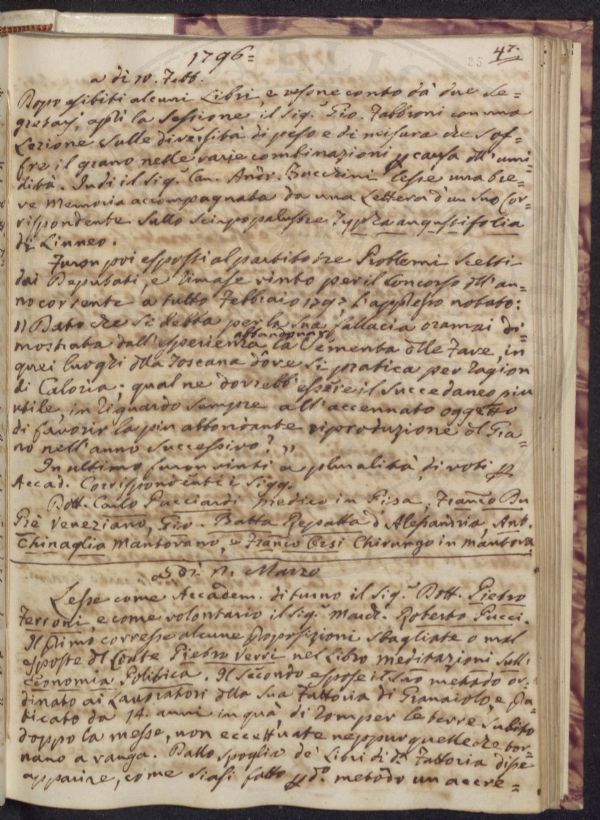 1796=
47.
33
a dì 10. Febb.
Dopo esibiti alcuni Libri, e resone conto da due Se=
gretarj, aprì la Sessione il Sig.r Gio. Fabbroni con una
Lezione sulle diversità di peso e di misura che sof=
fre il grano nelle varie combinazioni p causa dll'umi
dità. Indi il Sig.r Can. Andr. Zucchini lesse una bre=
ve Memoria accompagnata da una Lettera d'un suo Cor=
rispondente sullo Sciapo palustre Typha angustifolia
di Linneo.
Furon poi esposti al partito tre Problemi scelti
dai Deputati, e rimase vinto per il Concorso dll'an=
no corrente a tutto Febbraio 1797 l'appresso notato:
"Dato che si debba per la sua fallacia oramai di=
mostrata dall'esperienza abbandonare la Sementa dlle Fave, in
quei luoghi dlla Toscana dove si pratica per ragion
di Caloria; qual ne dovrebb'essere il succedaneo più
utile, in riguardo sempre all'accennato oggetto
di favorir la più abbondante riproduzione dl Gra=
no nell'anno successivo?"
In ultimo furon vinti a pluralità di voti p
Accad. Corrispondenti i Sigg.
Dott. Carlo Pucciardi medico in Pisa, Franc.o Du
Prè Veneziano, Gio. Batta Repatta d'Alessandria, Ant.
Chinaglia Mantovano, e Franc.o Corsi Chirurgo in Mantova
a dì Marzo
Lesse come Accadem. di turno il Sig.r Dott. Pietro
Ferroni, e come volontario il Sig.r March. Roberto Pucci.
Il primo corresse alcune proposizioni sbagliate o mal
esposte dl Conte Pietro Verri nel Libro meditazioni sull'
Economia Politica. Il secondo espose il suo metodo or=
dinato ai Lavoratori dlla sua Fattoria di Granaiolo, e pra
ticato da 14. anni in quà, di romper le terre subito
doppo la messe, non eccettuate neppur quelle che tor=
nano a vanga. Dallo spoglio de' Libri di d.a Fattoria disse
apparire, come siasi fatto p d.o metodo un accre=